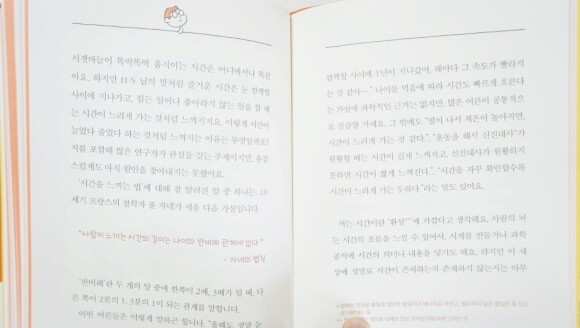 시곗바늘이 똑딱똑딱 움직이는 시간은 어디에서나 똑같
아요. 하지만 H·S 님의 말처럼 즐거운 시간은 눈 깜짝할
사이에 지나가고, 힘든 일이나 좋아하지 않는 일을 할 때
는 시간이 느리게 가는 것처럼 느껴지지요. 이렇게 시간이
늘었다 줄었다 하는 것처럼 느껴지는 이유는 무엇일까요?
저를 포함해 많은 연구자가 관심을 갖는 주제이지만, 유감
스럽게도 아직 원인을 찾아내지는 못했어요.
'시간을 느끼는 법'에 대해 잘 알려진 말 중 하나는, 19
세기 프랑스의 철학자 폴 자네가 세운 다음 가설입니다.
"사람이 느끼는 시간의 길이는 나이와 반비례 관계에 있다."
- 자네의 법칙
'반비례'란 두 개의 양 중에 한쪽이 2배, 3배가 될 때, 다
른 쪽이 2분의 1, 3분의 1이 되는 관계를 말합니다.
어떤 어른들은 이렇게 말하곤 합니다. "올해도 정말 눈
깜짝할 사이에 1년이 지나갔어. 해마다 그 속도가 빨라지
는 것 같아…." 나이를 먹음에 따라 시간도 빠르게 흐른다
는 가설에 과학적인 근거는 없지만, 많은 어른이 공통적으
로 실감할 거예요. 그 밖에도 "열이 나서 체온이 높아지면,
시간이 느리게 가는 것 같다.", "운동을 해서 신진대사가
원활할 때는 시간이 길게 느껴지고, 신진대사가 원활하지
못하면, 시간이 짧게 느껴진다.", "시간을 자꾸 확인할수록
시간이 느리게 가는 듯하다."라는 말도 있어요.
저는 시간이란 '환상'에 가깝다고 생각해요. 사람의 뇌
는 시간의 흐름을 느낄 수 있어서, 시계를 만들거나 과학
공식에 시간의 의미나 내용을 넣기도 해요. 하지만 이 세
상에 정말로 시간이 존재하는지 존재하지 않는지는 아무